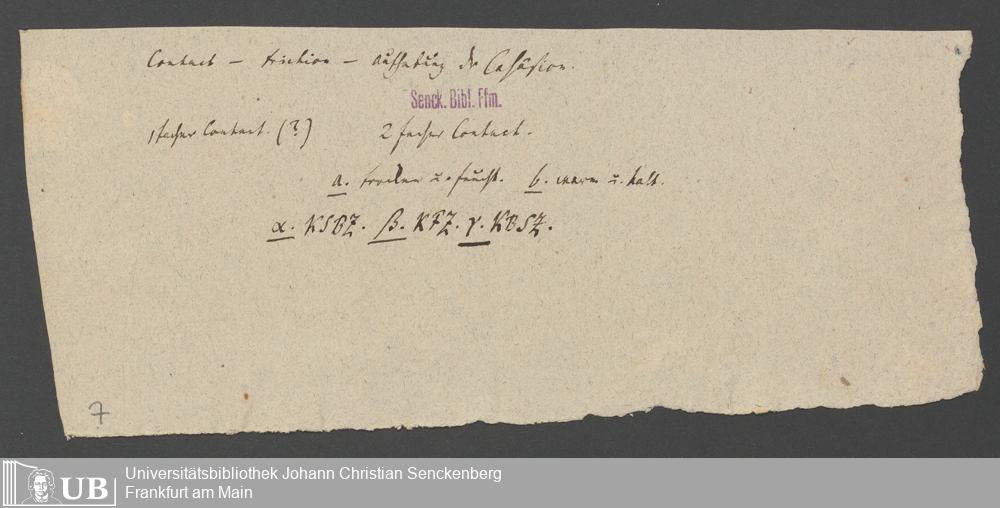 Contact – Friction – Aufhebung der Cohäsion.
Senck. Bibl. Ffm.
1facher Contact. (?) 2facher Contact.
a. trocken u. feucht. b. warm u. kalt.
α. KSBZ. β. KFZ. γ. KBSZ.
7
UB
Universitätsbibliothek Johann Christian Senckenberg
Frankfurt am Main